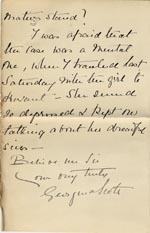 matters stand?
I was afraid that
the case was a mental
one, when I travelled last
Saturday with the girl to
She seemed
so depressed & kept on
talking about his dreadful
sins —
Believe me Sir
Your very truly
Georgina Scott